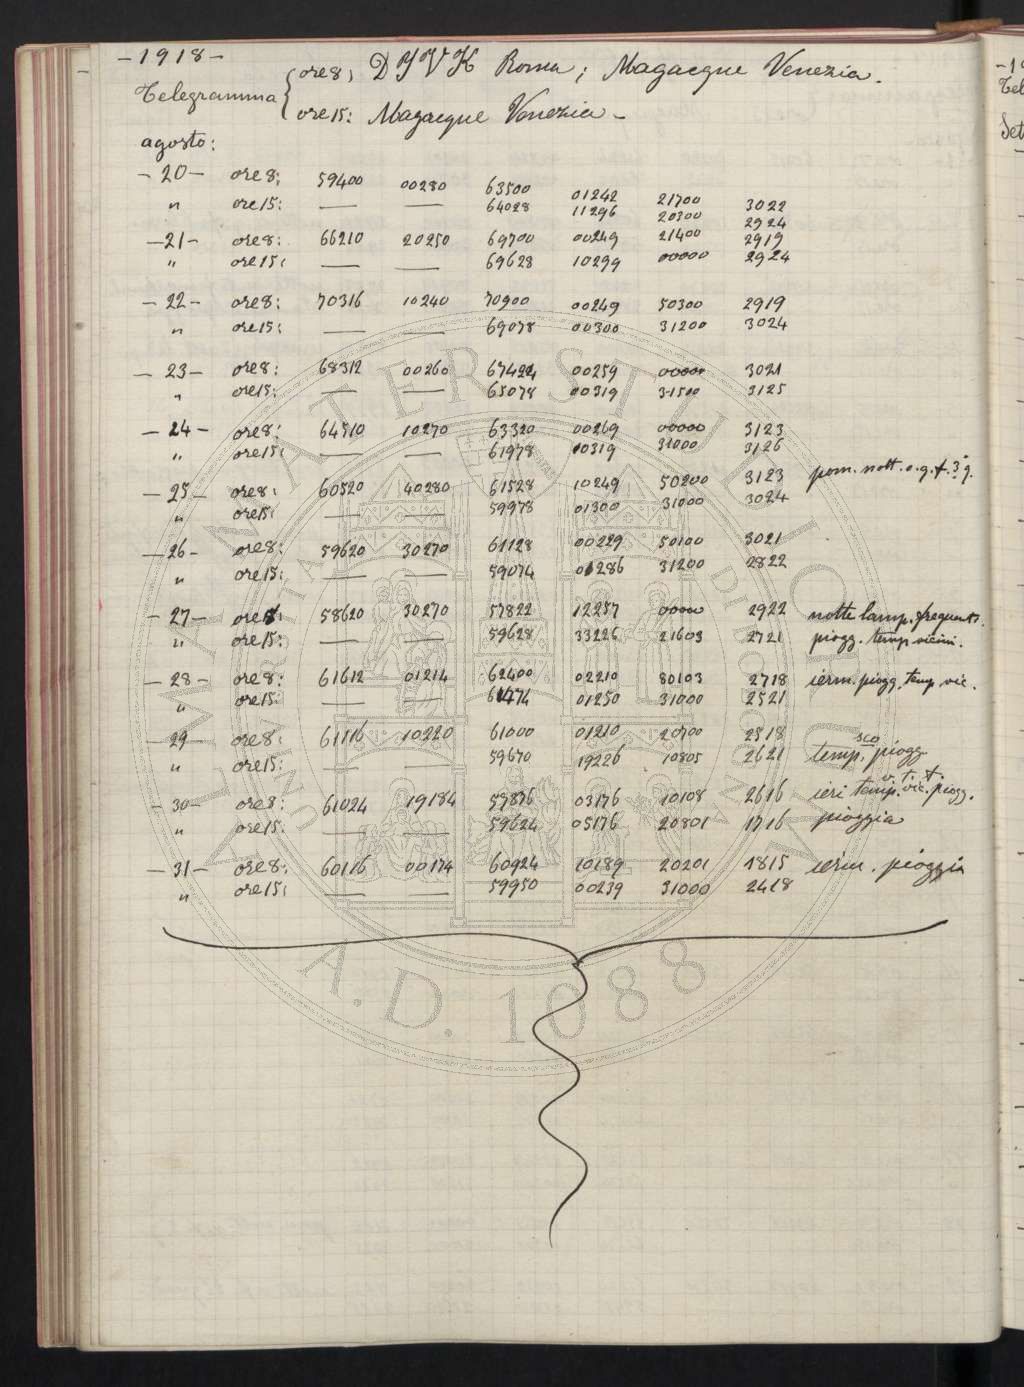 -1918-
Telegramma
ore8; DYVK Roma; Magacque Venezia.
ore15: Magacque Venezia-
agosto:
-20- ore8: 59400 00280 63500 01242 21700 3022
" ore15: — — 64028 11296 20300 2924
-21- ore8: 66210 20250 69700 00249 21400 2919
" ore15: — — 69628 10299 00000 2924
-22- ore8: 70316 10240 70900 00249 50300 2919
" ore15: — — 69078 00300 31200 3024
-23- ore8: 68312 00260 67424 00259 00000 3021
" ore15: — — 65078 00319 31500 3125
-24- ore8: 64510 10270 63320 00269 00000 3123
" ore15: — — 61978 10319 31000 3126
-25- ore8: 60520 40280 61528 10249 50200 3123 pom. nott. o.g.f. 3 g.
" ore15: — — 59978 01300 31000 3024
-26- ore8: 59620 30270 61128 00229 50100 3021
" ore15: — — 59074 01286 31200 2822
-27- ore8: 58620 30270 57822 12257 00000 2922 notte lamp. frequenti.
" ore15: — — 59628 33226 21603 2721 piogg. temp vicini.
-28- ore8: 61612 01214 62400 02210 80103 2718 ierm. piogg. temp vic.
" ore15: — — 61474 01250 31000 2521
-29- ore8: 61116 10220 61000 01210 20700 2518
" ore15: — — 59670 19226 10805 2621 temp.sco piogg
-30- ore8: 61024 19184 59876 03176 10108 2616 ieri temp. vic. piogg. v. t. t.
" ore15: — — 59624 05176 20801 1716 pioggia
-31- ore8: 60116 00174 60924 10189 20201 1815 ierm. pioggia
" ore15: — — 59950 00239 31000 2418
ALMA MATER STUDIORUM
A.D. 1088